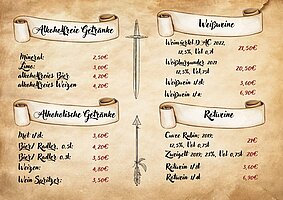 Alkoholfreie Getränke
Mineral: 2,50€
Limo: 3,60€
alkoholfreies Bier: 4,20€
alkoholfreies Weizen: 4,20€
Alkoholische Getränke
Met 1/8l: 3,60€
Bier/ Radler, 0,5l: 4,20€
Bier/ Radler, 0,3l: 3,50€
Weizen: 4,80€
Wein Spritzer: 3,50€
Weißweine
2022,
12,5% Vol 0,7l 21,50€
Weißburgunder 2021
12,5% Vol 0,75l 20,50€
Weißwein 1/8l 3,60€
Weißwein 1/4l 6,90€
Rotweine
Cuvee Rubin, 2019,
12,5%, Vol 0,75l 21€
Zweigelt 2019, 13%, Vol 0,75l 20€
Rotwein 1/8l 3,60€
Rotwein 1/4l 6,90€